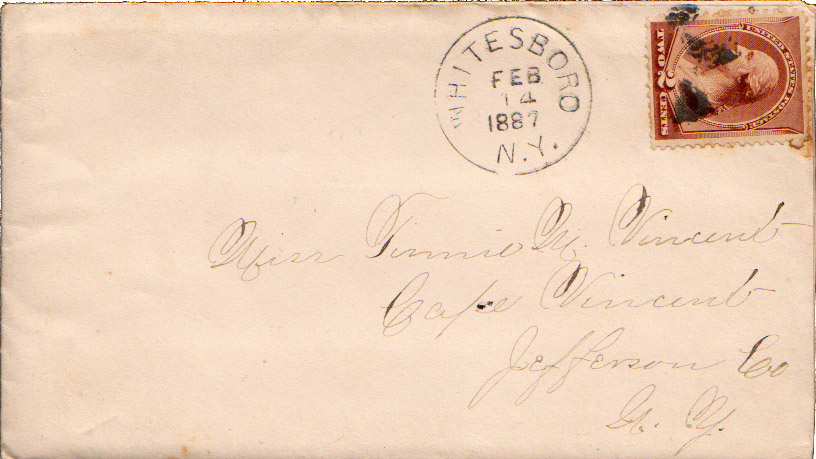 WHITESBORO
FEB
14
1887
N.Y.
UNITED STATES POSTAGE
TWO 2 CENTS
Miss Tinnie M. Vincent
Cape Vincent
Jefferson Co
N. Y.